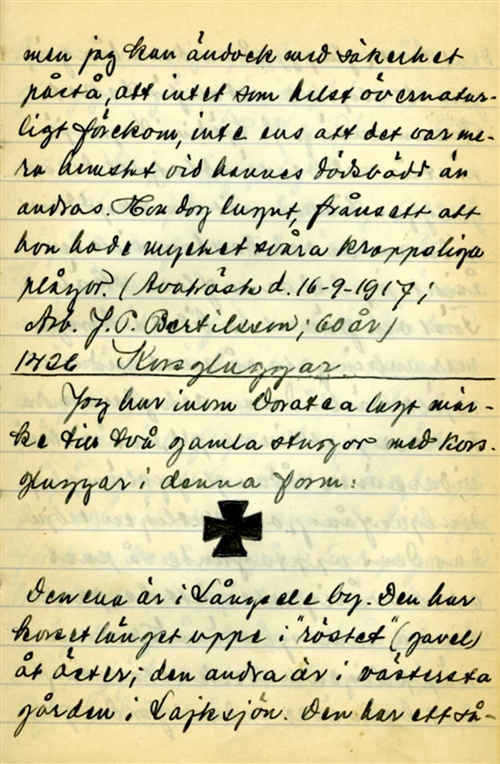 men jag kan ändock med säkerhet
påstå, att intet som helst övernatur-
ligt förekom, inte ens att det var me-
ra hemskt vid hennes dödsbädd än
andras. Hon dog lugnt, frånsett att
hon hade mycket svåra kroppsliga
plågor. (Avaträsk d. 16-9-1917;
Arb. J. P. Bertilsson; 60 år)
1426 Korsgluggar.
Jag har inom Dorotea lagt mär-
ke till två gamla stugor med kors-
gluggar i denna form:
Den ena är i Långsele by. Den har
korset länget uppe i "röstet" (gavel)
åt öster; den andra är i västersta
gården i Lajksjön. Den har ett så-